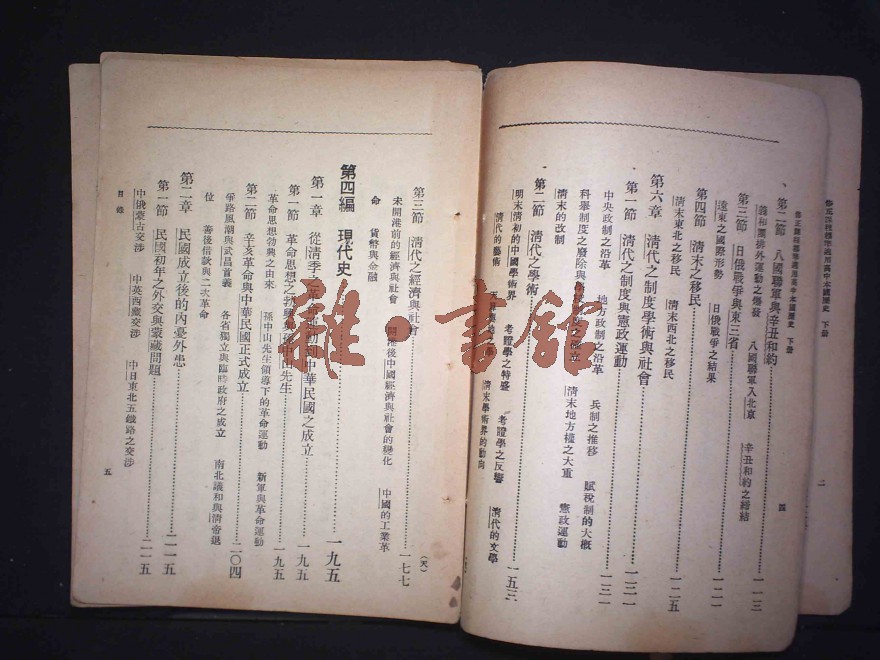 修正課程標準適用高中本國歷史 下冊
二
修正課程標準適用高中本國歷史 下冊
四
第二節 八國聯軍與辛丑和約……一一三
義和團排外運動之爆發 八國聯軍入北京 辛丑和約之締結
第三節 日俄戰爭與東三省……一二一
遠東之國際形勢 日俄戰爭之結果
第四節 清末之移民……一二五
清末東北之移民 清末西北之移民
第六章 清代之制度學術與社會……一三一
第一節 清代之制度與憲政運動……一三一
中央政制之沿革 地方政制之沿革 兵制之推移 賦稅制的大概
科舉制度之廢除與學校制度之成立 清末地方權之大重 憲政運動
清末的改制
第二節 清代之學術……一五三
明末清初的中國學術界 考證學之特盛 考證學之反響 清代的文學
清代的藝術 清末學術界的動向
第三節 清代之經濟與社會……一七七
未開港前的經濟與社會 開港後中國經濟與社會的變化 中國的工業革
命 貨幣與金融
第四編 現代史……一九五
第一章 從清季之革命運動到中華民國之成立……一九五
第一節 革命思想之勃興與孫中山先生……一九五
革命思想勃興之由來 孫中山先生領導下的革命運動 新軍與革命運動
第二節 辛亥革命與中華民國正式成立……二〇四
爭路風潮與武昌首義 各省獨立與臨時政府之成立 南北議和與清帝退
位 善後借款與二次革命
第二章 民國成立後的內憂外患……二一五
第一節 民國初年之外交與蒙藏問題……二一五
中俄蒙古交涉 中英西藏交涉 中日東北五鐵路之交涉
目錄
五
雜·書館